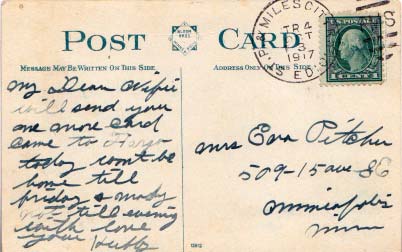 POST CARD
BLOOM BROS.
MESSAGE MAY BE WRITTEN ON THIS SIDE
ADDRESS ONLY ON THIS SIDE
ST. P. & MILES CITY
TR 4
OCT
3
1917
R.P.O.
U.S. POSTAGE
1 CENT 1
S
My Dear Wifie
will send you
one more card
came to Fargo
today wont be
home till
friday & maby
not till evening
with love
your hubby
Mrs Eva Pitcher
509-15 ave SE
Minneapolis
Minn